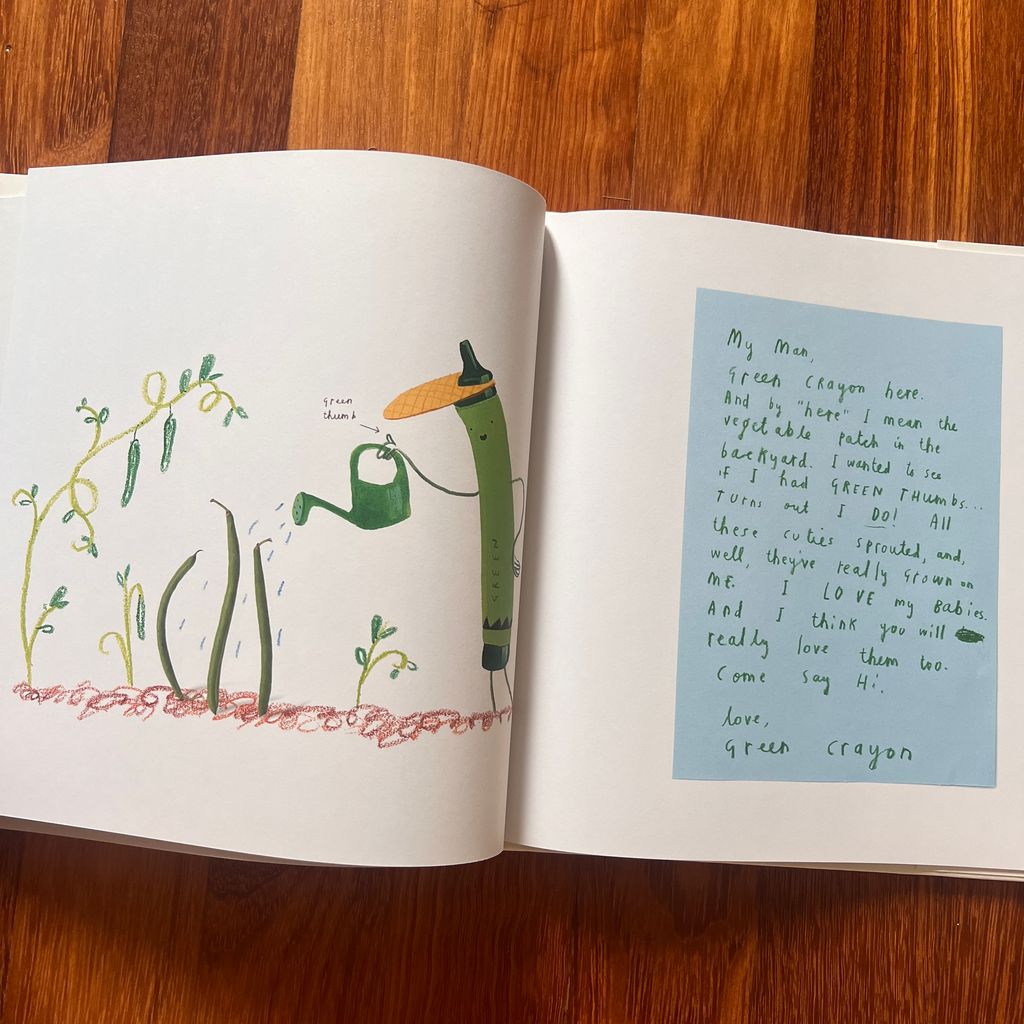 green
thumb
GREEN
My Man,
Green Crayon here.
And by "here" I mean the
vegetable patch in the
backyard. I wanted to see
if I had GREEN THumbs...
Turns out I DO! All
these cuties sprouted, and,
well, they've really grown on
ME. I LOVE my Babies.
And I think you will
really love them too.
Come say Hi.
love,
Green Crayon